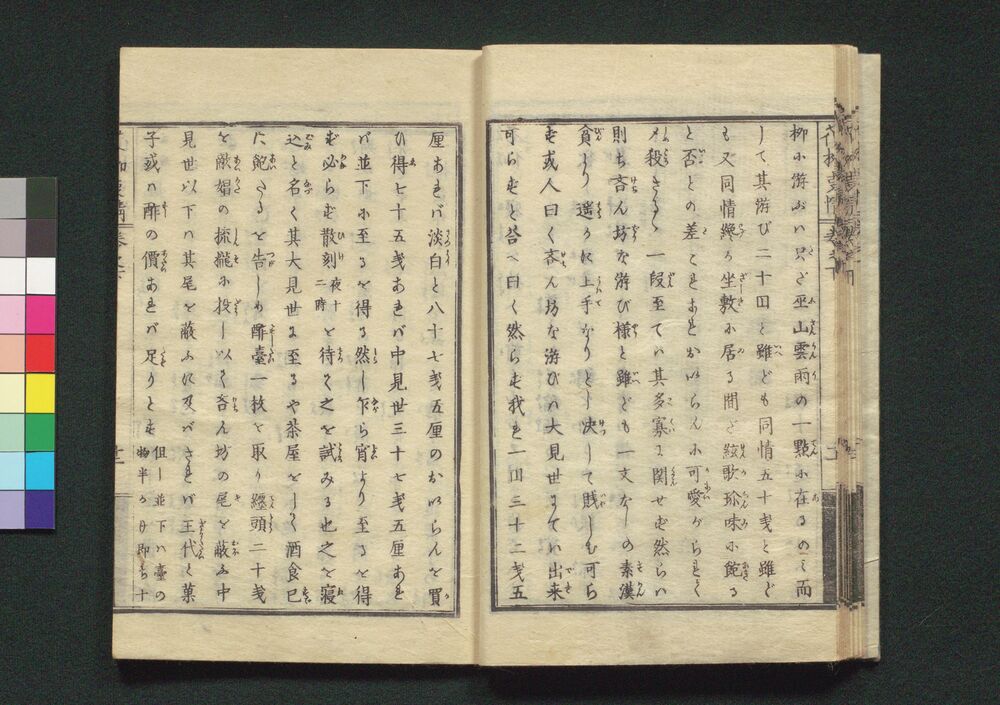 柳に游ぶハ只ざ巫山雲雨の一點に在るのミ而
して其游び二十回と雖ども同情五十戔と雖ど
も又同情纔か坐敷に居る間ど絃歌珍味に飽る
と否との差こそあれおいらんに可愛がられて
殺さるゝ一段至てハ其多寡に関せず然らハ
則ち吝ん坊な游び様と雖ども一文なしの素漢
貧より遥かに上手なりとし决して賎しむ可ら
ず或人曰く吝ん坊な游びハ大見世までハ出来
可らずと答へ曰く然らず我れ一回三十二戔五
厘あれバ淡白と八十七戔五厘のおいらんを買
ひ得七十五戔あれバ中見世三十七戔五厘あれ
バ並下に至るを得る然し乍ら宵より至るを得
ず必らず散刻
夜十
二時
を待て之を試みる也之を寝
込と名く其大見世に至るや茶屋をして酒食已
に飽たるを告しめ酢臺一枚を取り纒頭二十戔
を
見世以下ハ其尾を蔽ふに及バされバ王代く菓
子或ハ酢の價あれバ足りとす
但し並下ハ臺の
物半
即ち十